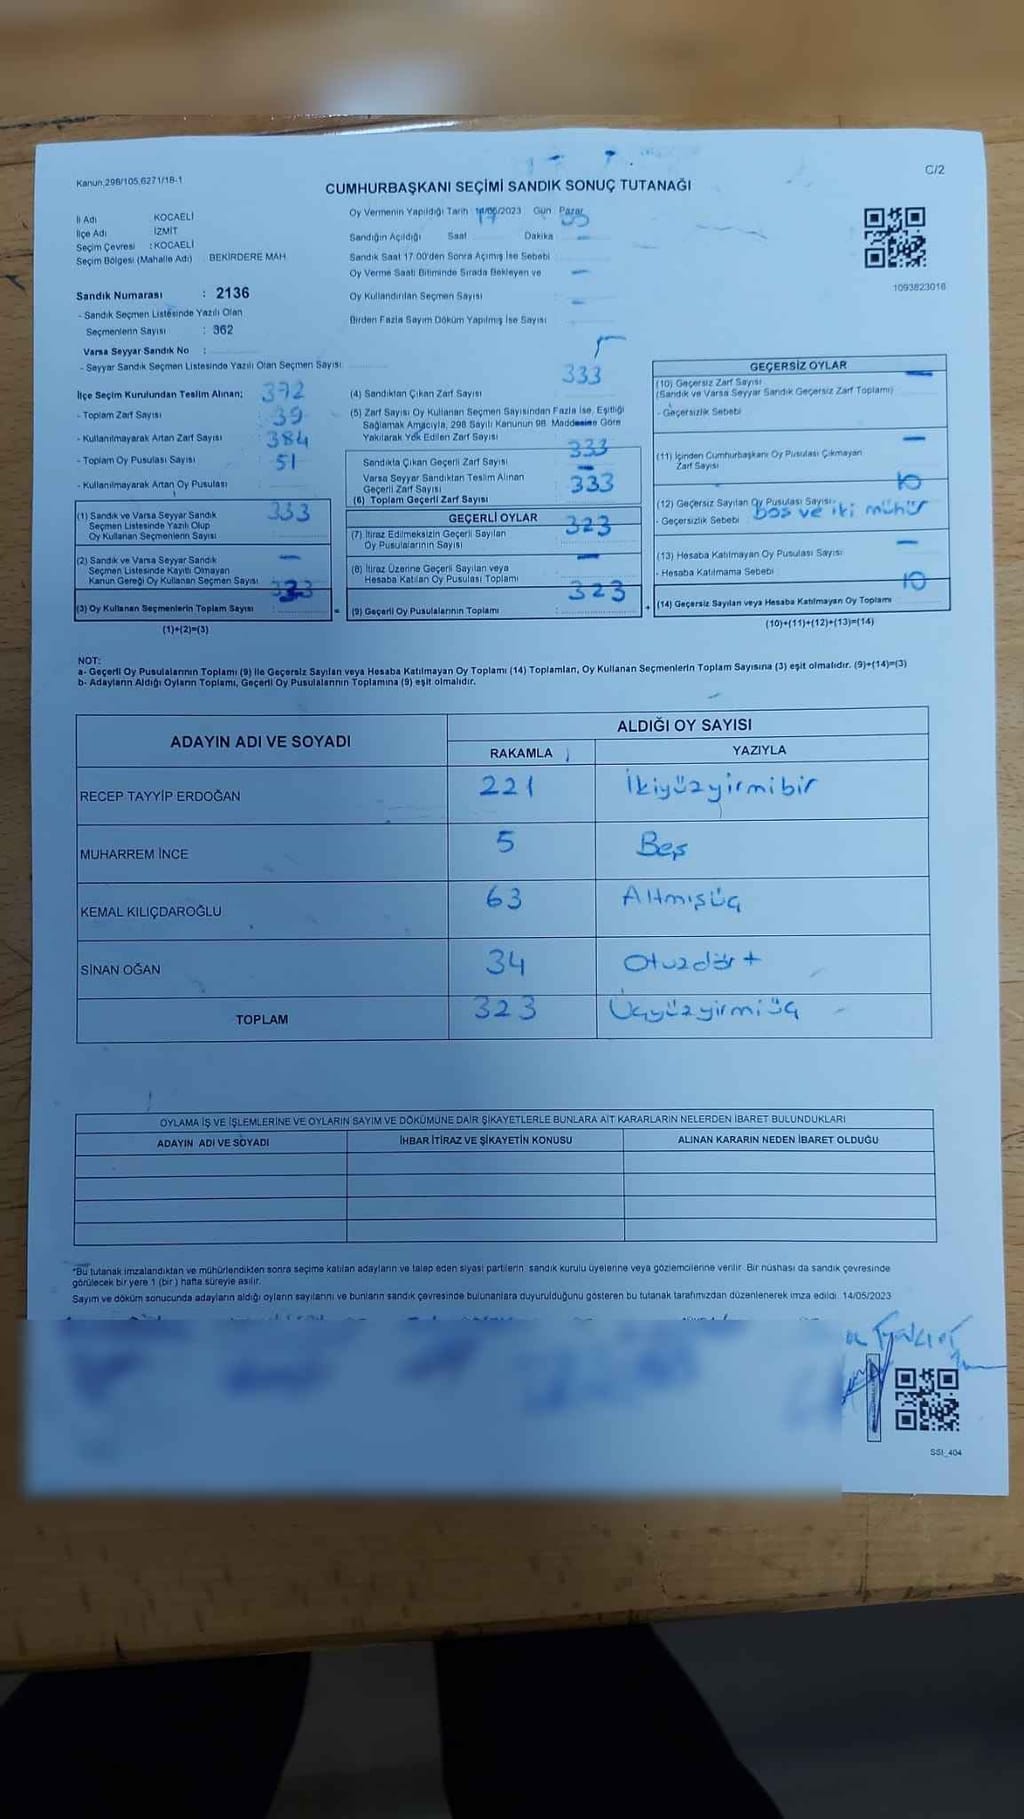 Kanun 298/105,6271/18-1
C/2
CUMHURBAŞKANI SEÇİMİ SANDIK SONUÇ TUTANAĞI
İl Adı : KOCAELİ
İlçe Adı : İZMİT
Seçim Çevresi : KOCAELİ
Seçim Bölgesi (Mahalle Adı) : BEKİRDERE MAH
Sandık Numarası : 2136
- Sandık Seçmen Listesinde Yazılı Olan
Seçmenlerin Sayısı : 362
Varsa Seyyar Sandık No :
- Seyyar Sandık Seçmen Listesinde Yazılı Olan Seçmen Sayısı
Oy Vermenin Yapıldığı Tarih 14/05/2023 Gün Pazar
Sandığın Açıldığı Saat 17 Dakika 35
Sandık Saat 17.00'den Sonra Açımış İse Sebebi
Oy Verme Saati Bitiminde Sırada Bekleyen ve
Oy Kullandırılan Seçmen Sayısı
Birden Fazla Sayım Döküm Yapılmış İse Sayısı
1093823016
İlçe Seçim Kurulundan Teslim Alınan;
- Toplam Zarf Sayısı 372
- Kullanılmayarak Artan Zarf Sayısı 39
- Toplam Oy Pusulası Sayısı 384
- Kullanılmayarak Artan Oy Pusulası 51
(1) Sandık ve Varsa Seyyar Sandık 333
Seçmen Listesinde Yazılı Olup
Oy Kullanan Seçmenlerin Sayısı
(2) Sandık ve Varsa Seyyar Sandık
Seçmen Listesinde Kayıtlı Olmayan
Kanun Gereği Oy Kullanan Seçmen Sayısı
(3) Oy Kullanan Seçmenlerin Toplam Sayısı 333
(1)+(2)=(3)
(4) Sandıktan Çıkan Zarf Sayısı 333
(5) Zarf Sayısı Oy Kullanan Seçmen Sayısından Fazla İse, Eşitliği
Sağlamak Amacıyla, 298 Sayılı Kanunun 98. Maddesine Göre
Yakılarak Yok Edilen Zarf Sayısı
Sandıkta Çıkan Geçerli Zarf Sayısı 333
Varsa Seyyar Sandıktan Teslim Alınan
Geçerli Zarf Sayısı
(6) Toplam Geçerli Zarf Sayısı 333
GEÇERLİ OYLAR
(7) İtiraz Edilmeksizin Geçerli Sayılan 323
Oy Pusulalarının Sayısı
(8) İtiraz Üzerine Geçerli Sayılan veya
Hesaba Katılan Oy Pusulası Toplamı
(9) Geçerli Oy Pusulalarının Toplamı 323
GEÇERSİZ OYLAR
(10) Geçersiz Zarf Sayısı
(Sandık ve Varsa Seyyar Sandık Geçersiz Zarf Toplamı)
- Geçersizlik Sebebi
(11) İçinden Cumhurbaşkanı Oy Pusulası Çıkmayan
Zarf Sayısı
(12) Geçersiz Sayılan Oy Pusulası Sayısı 10
- Geçersizlik Sebebi boş ve iki mühür
(13) Hesaba Katılmayan Oy Pusulası Sayısı
- Hesaba Katılmama Sebebi
(14) Geçersiz Sayılan veya Hesaba Katılmayan Oy Toplamı 10
(10)+(11)+(12)+(13)=(14)
NOT:
a- Geçerli Oy Pusulalarının Toplamı (9) ile Geçersiz Sayılan veya Hesaba Katılmayan Oy Toplamı (14) Toplamları, Oy Kullanan Seçmenlerin Toplam Sayısına (3) eşit olmalıdır. (9)+(14)=(3)
b- Adayların Aldığı Oyların Toplamı, Geçerli Oy Pusulalarının Toplamına (9) eşit olmalıdır.
ADAYIN ADI VE SOYADI
ALDIĞI OY SAYISI
RAKAMLA YAZIYLA
RECEP TAYYİP ERDOĞAN 221 İkiyüzyirmibir
MUHARREM İNCE 5 Beş
KEMAL KILIÇDAROĞLU 63 Altmışüç
SİNAN OĞAN 34 Otuzdört
TOPLAM 323 Üçyüzyirmiüç
OYLAMA İŞ VE İŞLEMLERİNE VE OYLARIN SAYIM VE DÖKÜMÜNE DAİR ŞİKAYETLERLE BUNLARA AİT KARARLARIN NELERDEN İBARET BULUNDUKLARI
ADAYIN ADI VE SOYADI İHBAR İTİRAZ VE ŞİKAYETİN KONUSU ALINAN KARARIN NEDEN İBARET OLDUĞU
*Bu tutanak imzalandıktan ve mühürlendikten sonra seçime katılan adayların ve talep eden siyasi partilerin sandık kurulu üyelerine veya gözlemcilerine verilir. Bir nüshası da sandık çevresinde
görülecek bir yere 1 (bir) hafta süreyle asılır.
Sayım ve döküm sonucunda adayların aldığı oyların sayılarını ve bunların sandık çevresinde bulunanlara duyurulduğunu gösteren bu tutanak tarafımızdan düzenlenerek imza edildi. 14/05/2023
SSI_404